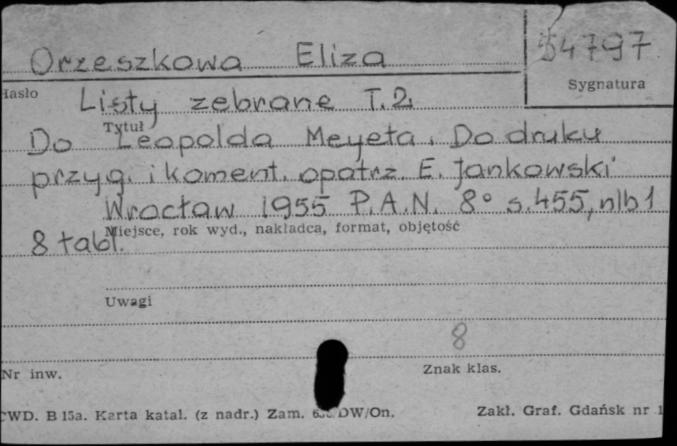 Orzeszkowa Eliza
54797
Hasło
Sygnatura
Listy zebrane T.2.
Tytuł
Do Leopolda Meyeta. Do druku
przyg. i koment. opatrz. E. Jankowski
Wrocław 1955 P.A.N. 8° s.455, nlb1
Miejsce, rok wyd., nakładca, format, objętość
8 tabl.
Uwagi
8
Nr inw.
Znak klas.
CWD. B 15a. Karta katal. (z nadr.) Zam. DW/On.
Zakł. Graf. Gdańsk nr 1